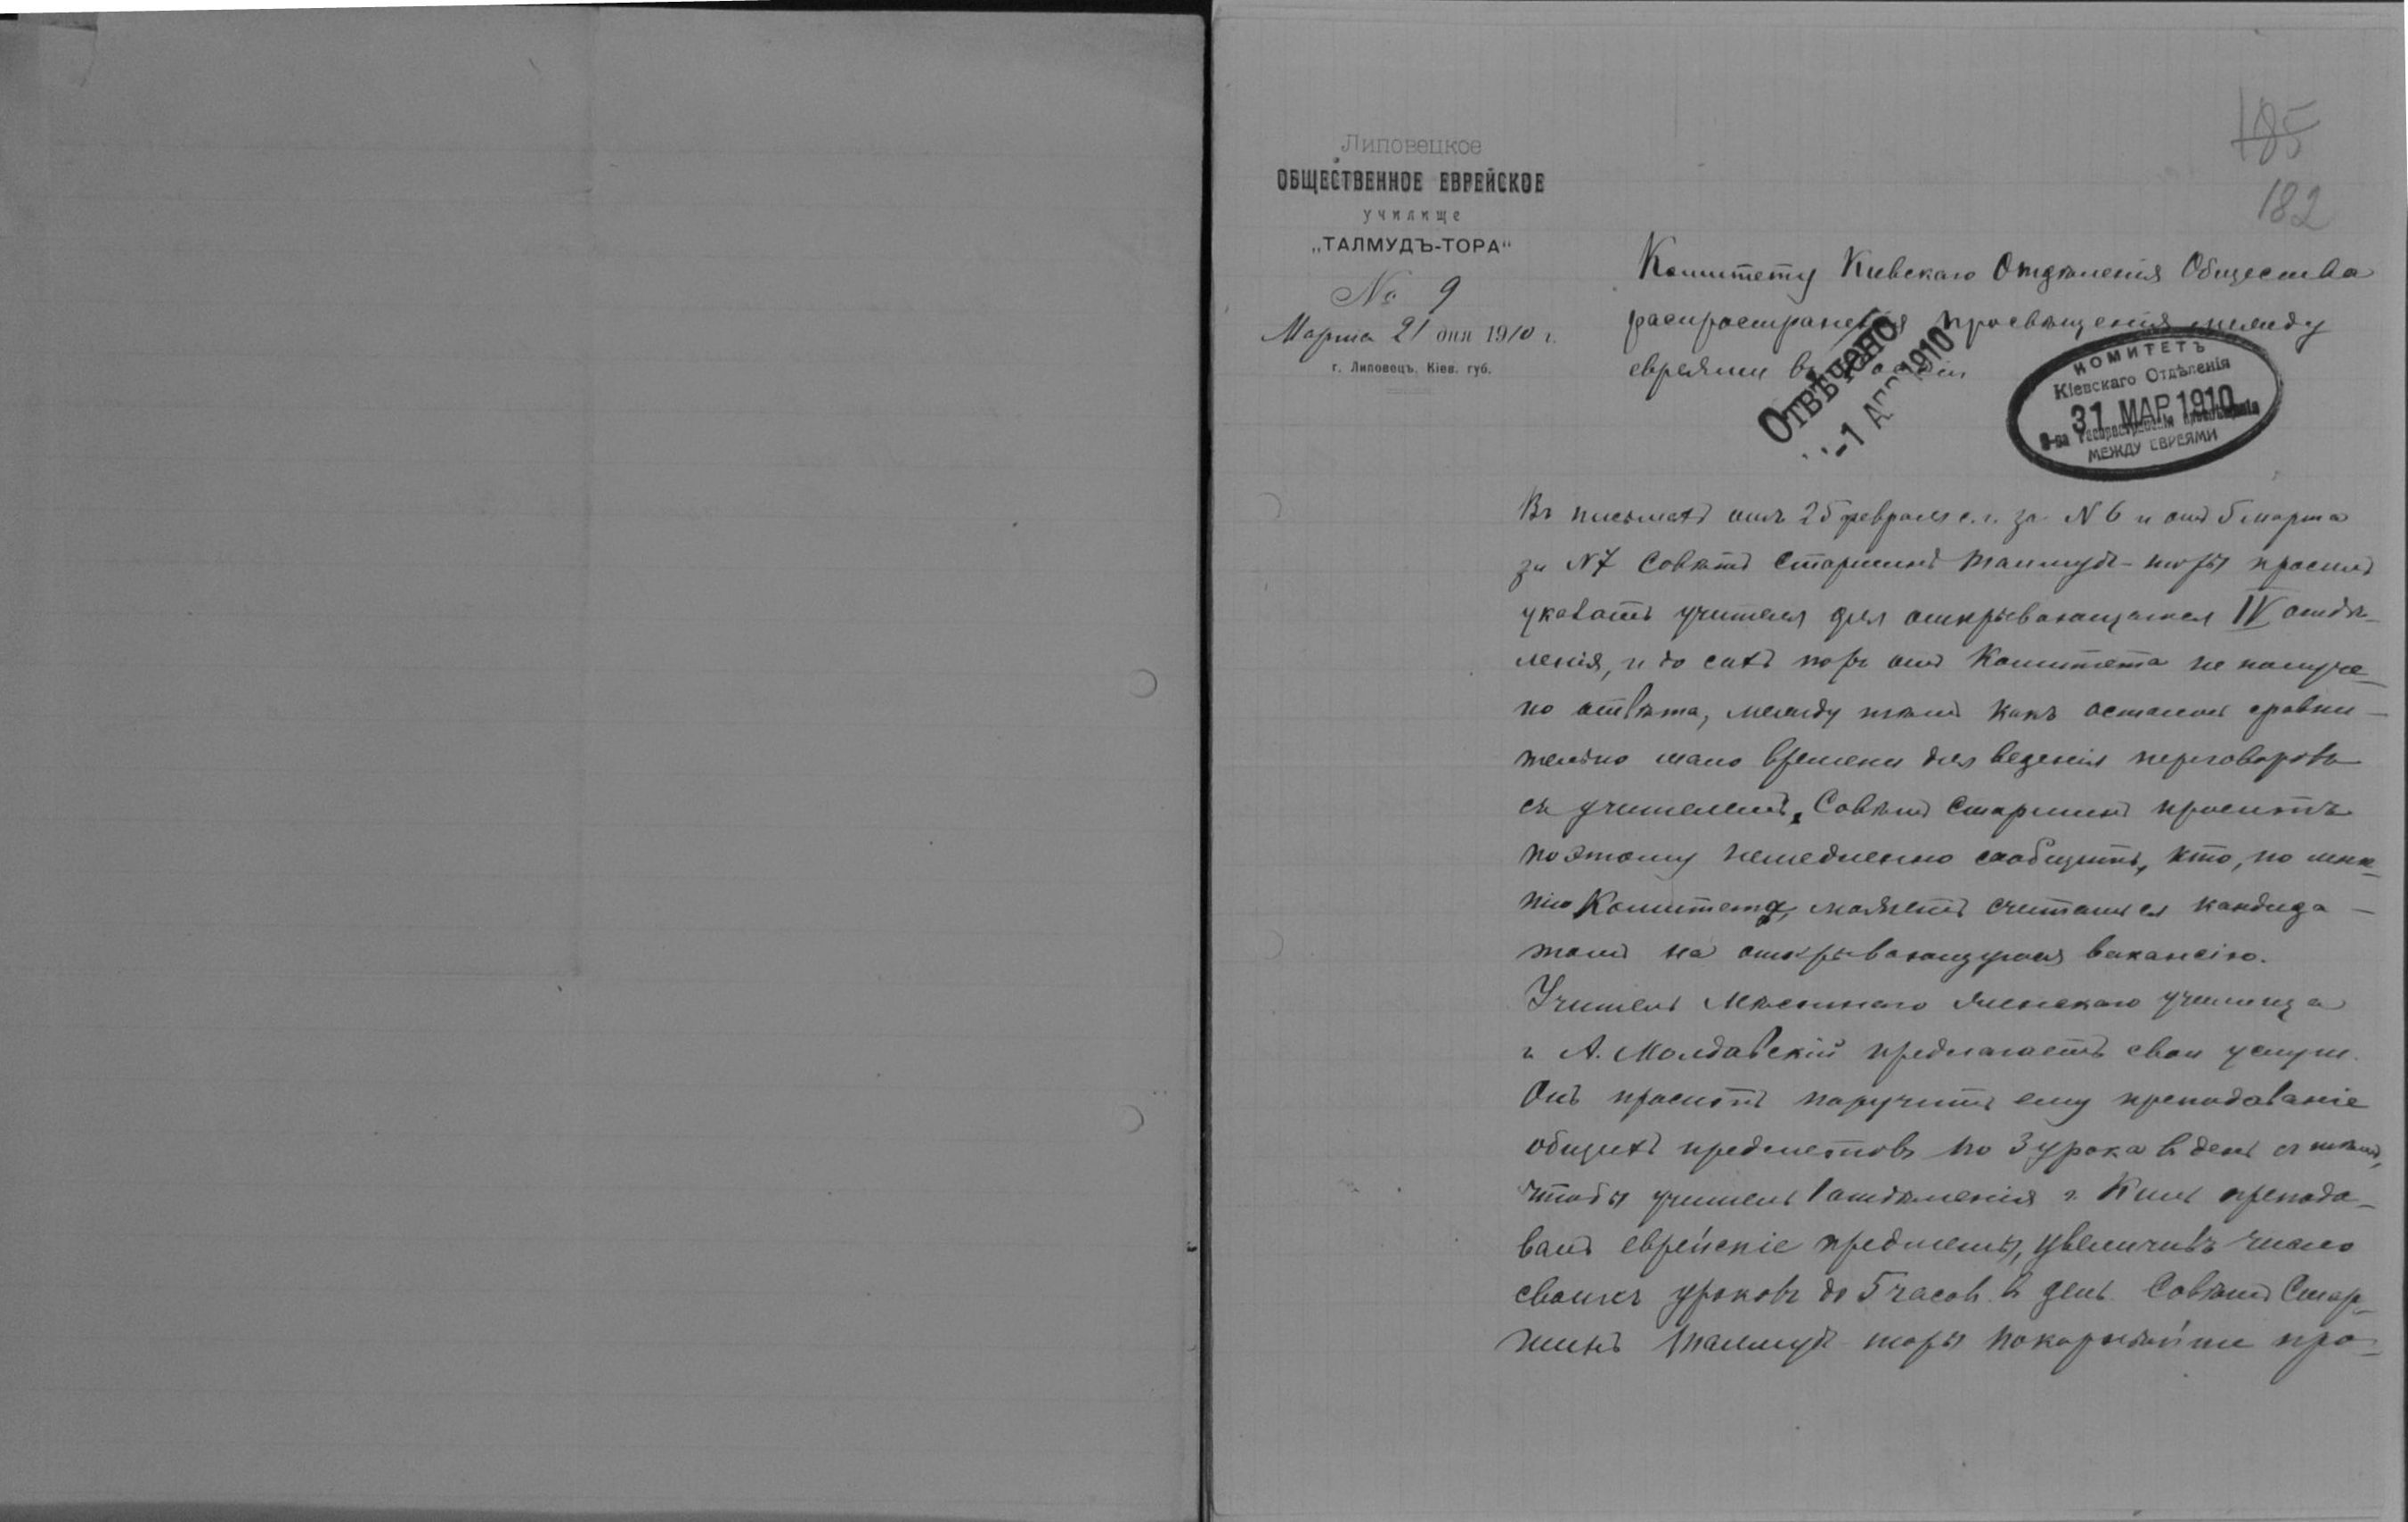 185
182
Липовецкое
ОБЩЕСТВЕННОЕ ЕВРЕЙСКОЕ
училище
„ТАЛМУДЪ-ТОРА"
№ 9
Марта 21 дня 1910 г.
г. Липовецъ, Кіев. губ.
Комитету Кіевскаго Отдѣленія Общества
распространенія просвѣщенія между
евреями въ
Отвѣчено
-1 АПР 1910
КОМИТЕТЪ
Кіевскаго Отдѣленія
31 МАР 1910
О-ва распространенія просвѣщенія
МЕЖДУ ЕВРЕЯМИ
Въ письмахъ отъ 25 февраля с. г. за N 6 и отъ 5 марта
за N 7 Совѣтъ Старшинъ Талмудъ-торы просилъ
указать учителя для открывающагося IV отдѣ-
ленія, и до сихъ поръ отъ Комитета не получе-
но отвѣта, между тѣмъ какъ осталось сравни-
тельно мало времени для веденія переговоровъ
съ учителемъ, Совѣтъ Старшинъ проситъ
поэтому немедленно сообщить, кто, по мнѣ-
нію Комитета, можетъ считаться кандида-
томъ на открывающуюся вакансію.
Учитель Мѣстнаго женскаго училища
г. А. Молдавскій предлагаетъ свои услуги.
Онъ проситъ поручить ему преподаваніе
общихъ предметовъ по 3 урока въ день съ тѣмъ,
чтобы учитель I отдѣленія г. преподо-
валъ еврейскіе предметы, увеличивъ число
своихъ уроковъ до 5 часов. въ день. Совѣтъ Стар-
шинъ Талмудъ торы покорнѣйше про-